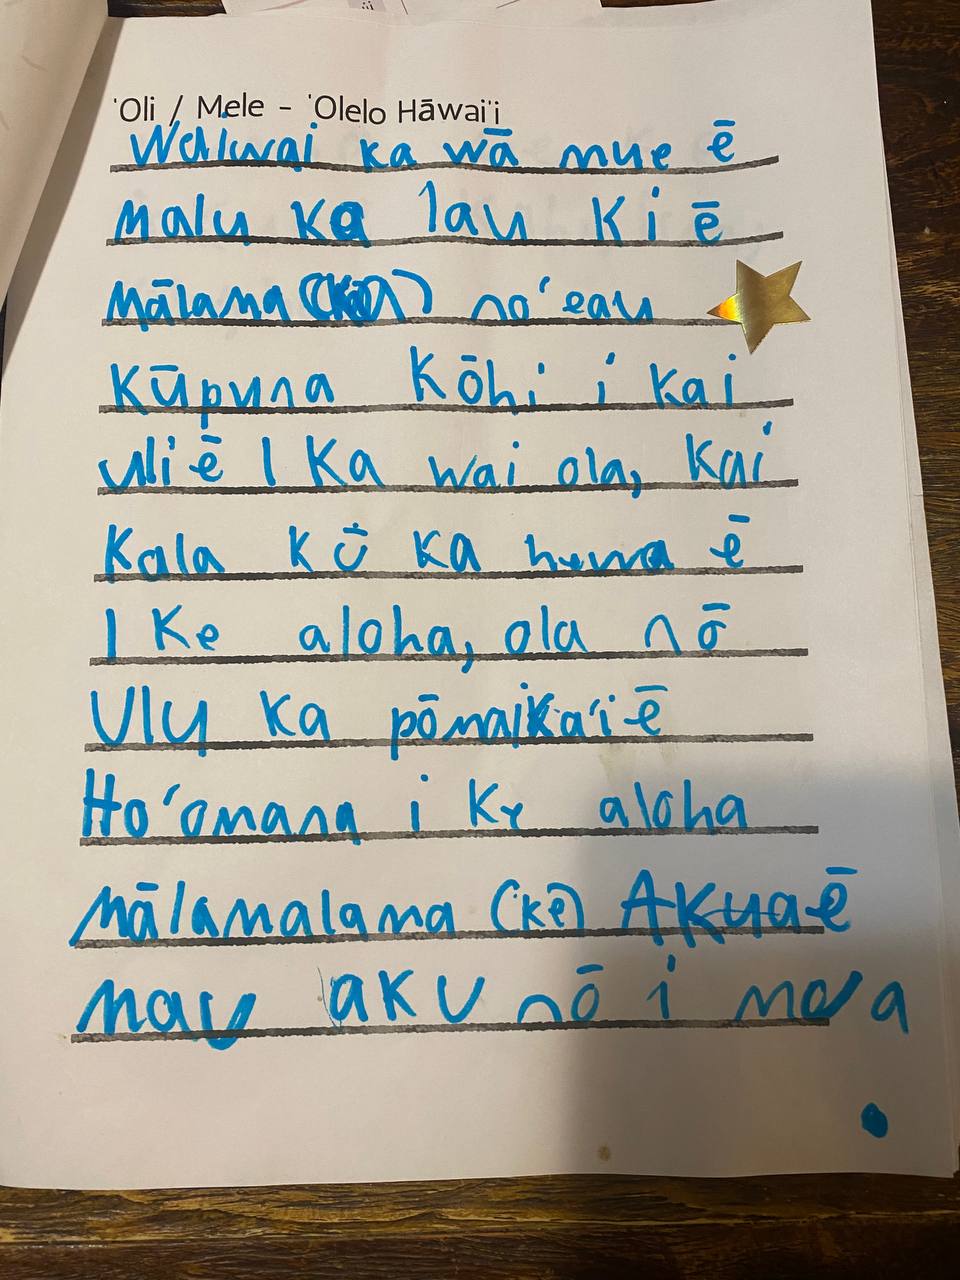 'Oli / Mele - 'Olelo Hāwai'i
Waiwai ka wā mue ē
Malu ka lau Ki ē
Mālama no'eau
Kūpuna Kōhi i Kai
uli ē I Ka wai ola, Kai
Kala Kū Ka ē
I Ke aloha, ola nō
Ulu Ka pōmaika'i ē
Ho'omana i Ke aloha
Mālamalama (kē) AKua ē
mau aKu nō i